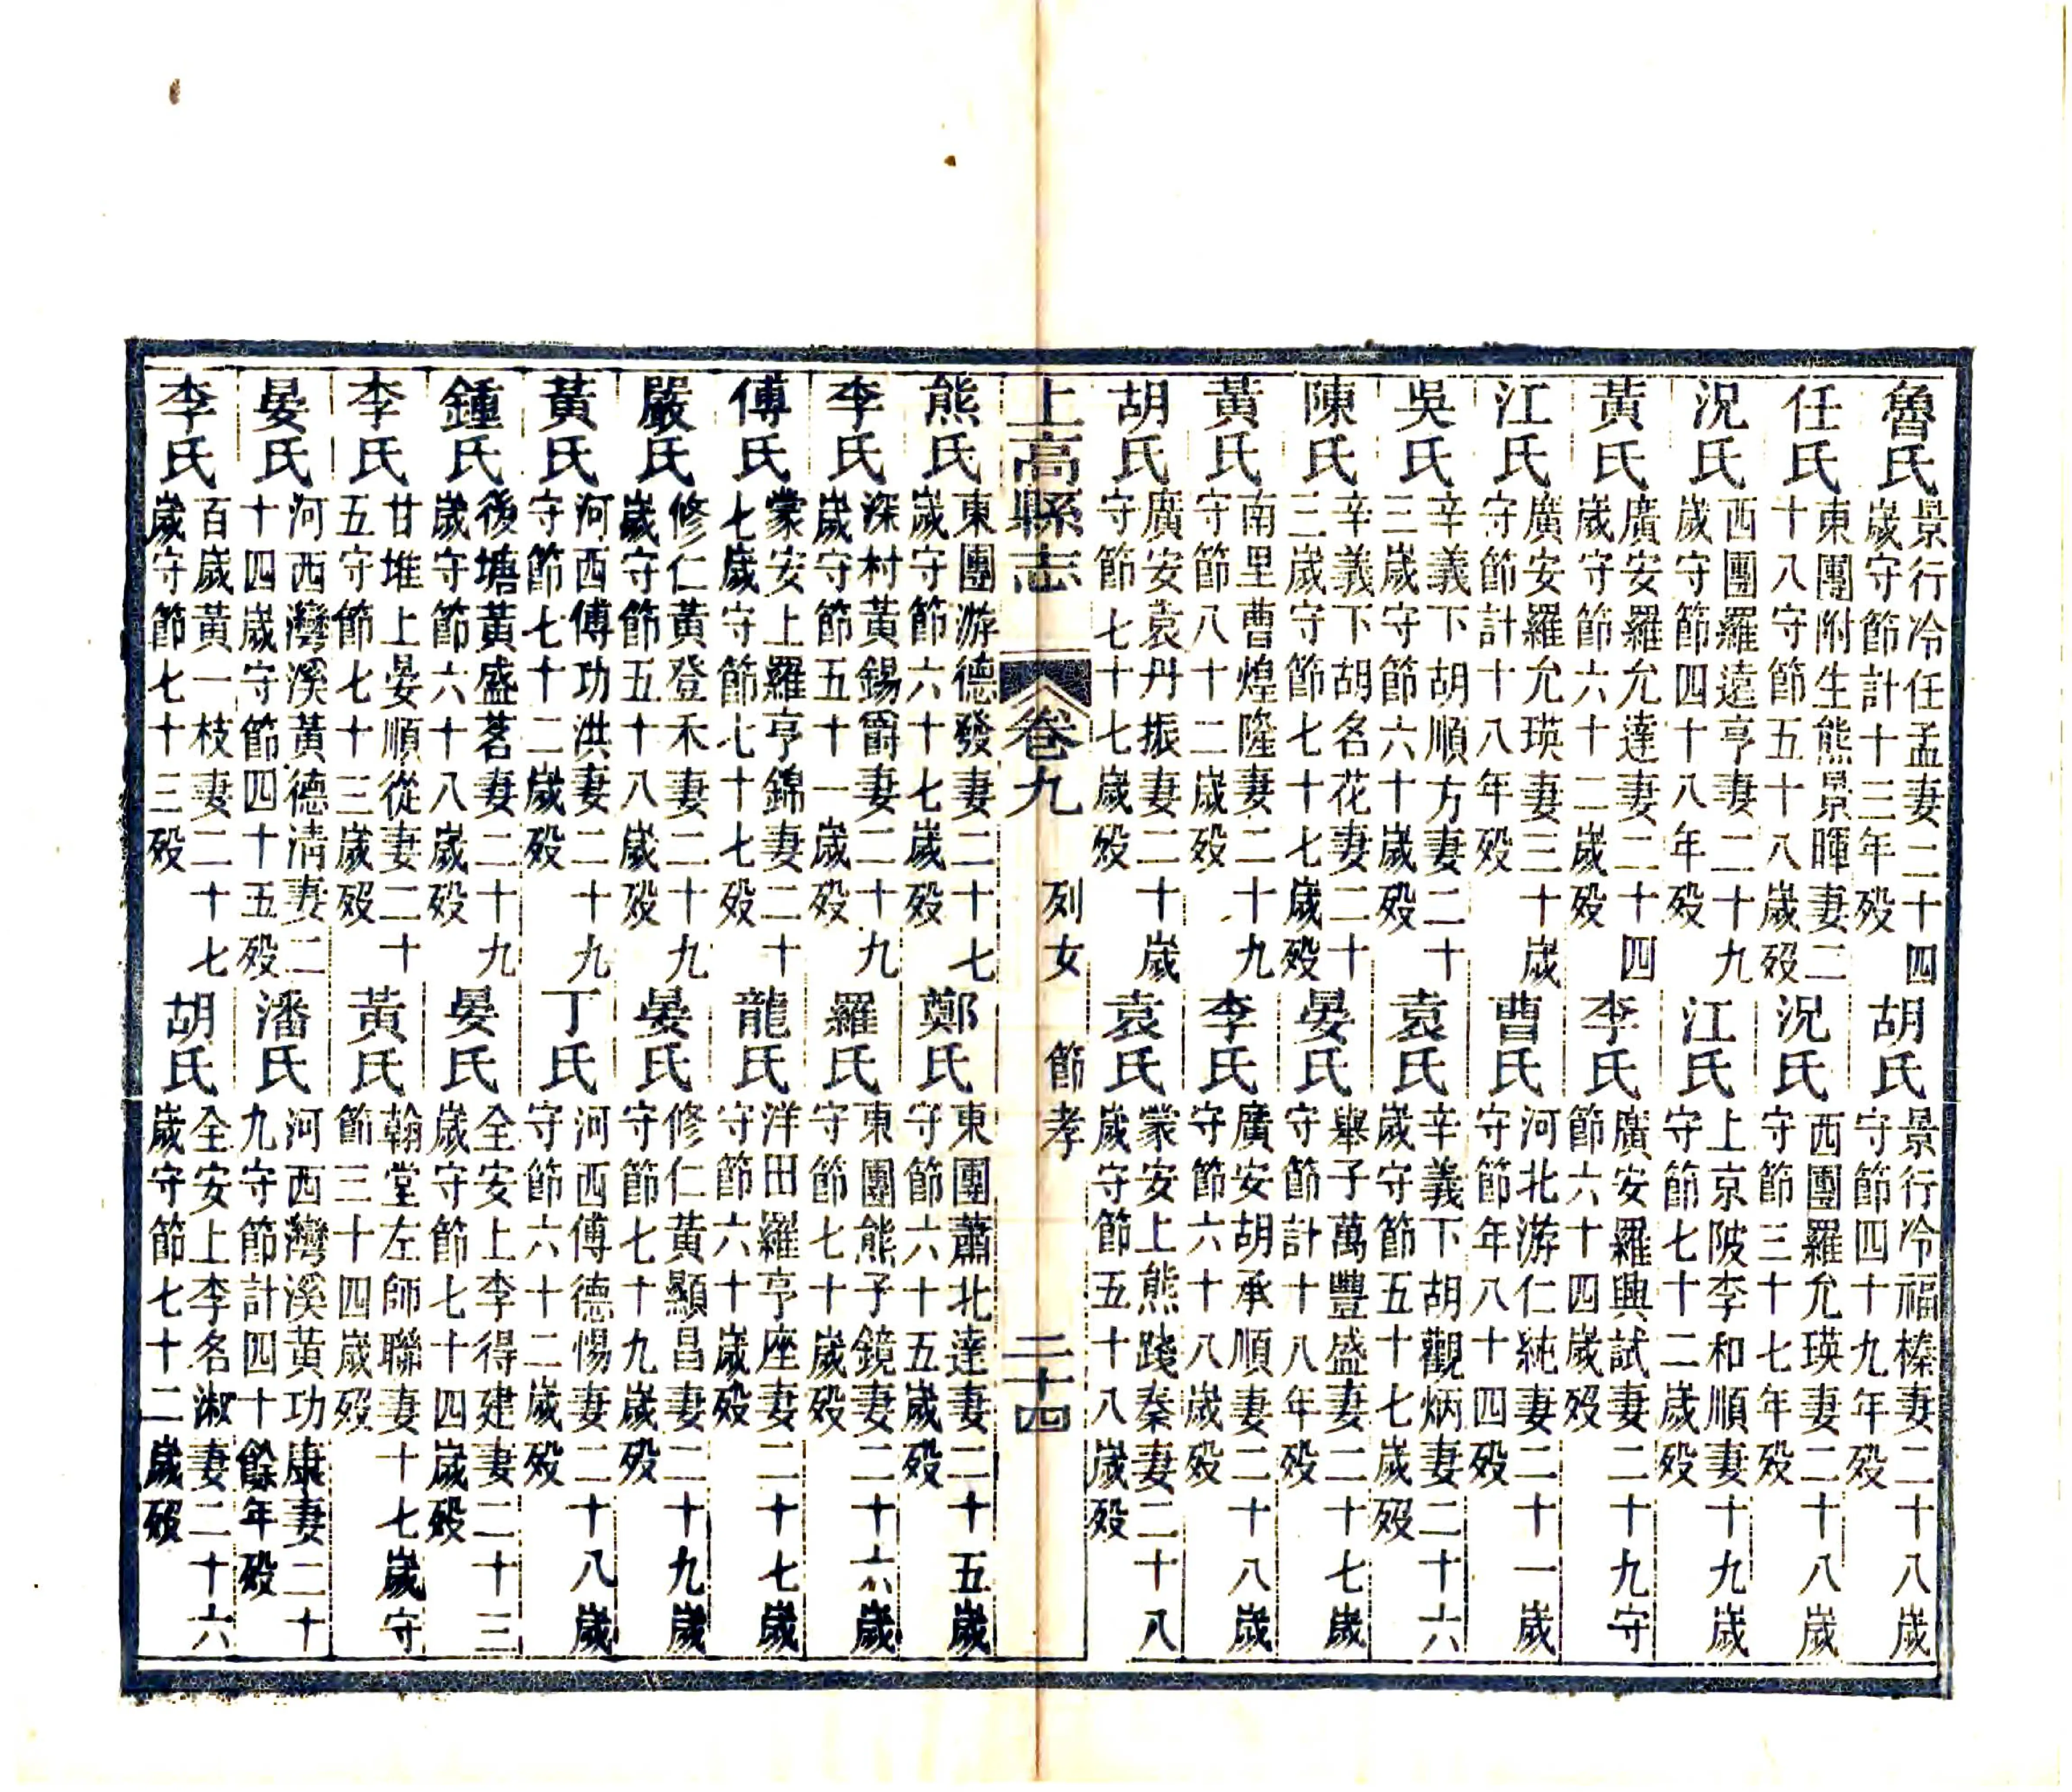 魯氏景行冷任孟妻二十四歲守節計十三年歿 胡氏景行冷福榛妻二十八歲守節四十九年歿
任氏東團附生熊景暉妻二十八守節五十八歲歿 況氏西團羅允瑛妻二十八歲守節三十七年歿
況氏西團羅遠亨妻二十九歲守節四十八年歿 江氏上京陂李和順妻十九歲守節七十二歲歿
黃氏廣安羅允達妻二十四歲守節六十二歲歿 李氏廣安羅興試妻二十九守節六十四歲歿
江氏廣安羅允瑛妻三十歲守節計十八年歿 曹氏河北游仁純妻二十一歲守節年八十四歿
吳氏辛義下胡順方妻二十三歲守節六十歲歿 袁氏辛義下胡觀炳妻二十六歲守節五十七歲歿
陳氏辛義下胡名花妻二十三歲守節七十七歲歿 晏氏舉子萬豐盛妻二十七歲守節計十八年歿
黃氏南里曹煌隆妻二十九守節八十二歲歿 李氏廣安胡承順妻二十八歲守節六十八歲歿
胡氏廣安袁丹振妻二十歲守節七十七歲歿 袁氏蒙安上熊踐秦妻二十八歲守節五十八歲歿
上高縣志 卷九 列女 節孝 二十四
熊氏東團游德發妻二十七歲守節六十七歲歿 鄭氏東團蕭北達妻二十五歲守節六十五歲歿
李氏深村黃錫爵妻二十九歲守節五十一歲歿 羅氏東團熊子鏡妻二十六歲守節七十歲歿
傅氏蒙安上羅亨錦妻二十七歲守節七十七歿 龍氏洋田羅亨座妻二十七歲守節六十歲歿
嚴氏修仁黃登禾妻二十九歲守節五十八歲歿 晏氏修仁黃顯昌妻二十九歲守節七十九歲歿
黃氏河西傅功洪妻二十九守節七十二歲歿 丁氏河西傅德惕妻二十八歲守節六十二歲歿
鍾氏後塘黃盛茗妻二十九歲守節六十八歲歿 晏氏全安上李得建妻二十三歲守節七十四歲歿
李氏甘堆上晏順從妻二十五守節七十三歲歿 黃氏翰堂左師聯妻十七歲守節三十四歲歿
晏氏河西灣溪黃德清妻二十四歲守節四十五歿 潘氏河西灣溪黃功康妻二十九守節計四十餘年歿
李氏百歲黃一枝妻二十七歲守節七十三歿 胡氏全安上李名淑妻二十六歲守節七十二歲歿